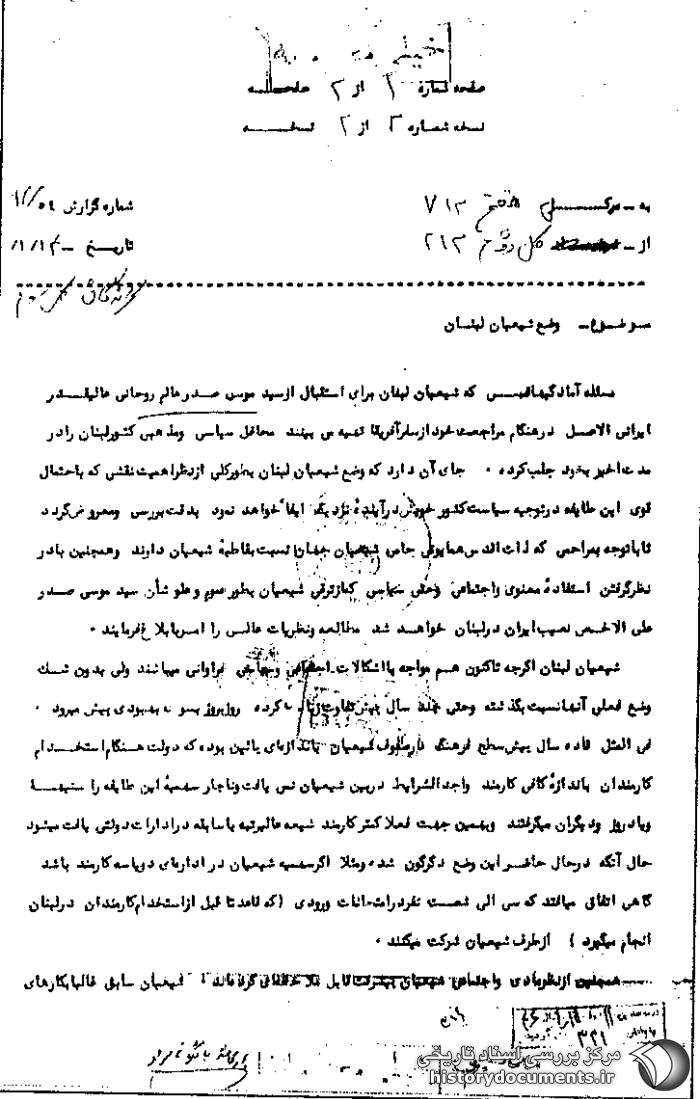 صفحه شماره ۱ از ۲ صفحه
نسخه شماره ۲ از ۲ نسخه
به ـ مرکـــز ۷۱۲ شماره گزارش
از ـ ۲۱۳ تاریخ
موضوع ـ وضع شیعیان لبنان
مسئله آمادگیهائیـــس که شیعیان لبنان برای استقبال ازسید موسی صدر عالم روحانی عالیقـــدر
ایرانی الاصـل درهنگام مراجعت خود از سفرآفریقا تهیه می بینند محافل سیاسی ومذهبی کشورلبنان را در
مدت اخیر بخود جلب کرده ۰ جای آن دارد که وضع شیعیان لبنان بطورکلی ازنظر اهمیت نقشی که باحتمال
قوی این طایفه درتوجیه سیاست کشور خویش درآینده نزدیک ایفا خواهد نمود بدقت بررسی ومعروض گردد
تا باتوجه بمراحمی که ذات اقدس همایونی جامی شیعیان جهان نسبت بقاطبه شیعیان دارند وهمچنین با در
نظرگرفتن استفاده معنوی واجتماعی وحتی سیاسی که ازترقی شیعیان بطورعموم وعلو شأن سید موسی صدر
علی الاخص نصیب ایران درلبنان خواهد شد مطالعه ونظریات عالـی را امر بابلاغ فرمایند ۰
شیعیان لبنان اگرچه تاکنون هم مواجه بااشکالات اجتماعی وسیاسی فراوانی میباشند ولی بدون شـک
وضع فعلی آنها نسبت بگذشته وحتی چند سال پیش تفاوت زیاد کرده روزبروز بسوی بهبودی پیش میرود ۰
فی المثل تا ده سال پیش سطح فرهنگ درصفوف شیعیان باندازه‌ای پائین بوده که دولت هنگام استخـدام
کارمندان باندازه کافی کارمند واجدالشرایط دربین شیعیان نمی یافت وناچار سهمیه این طایفه را سنیهـا
ویا دروز ودیگران میگرفتند وبهمین جهت فعلا کمتر کارمند شیعه عالیرتبه باسابقه درادارات دولتی یافت میشود
حال آنکه درحال حاضر این وضع دگرگون شده ومثلا اگرسهمیه شیعیان در اداره‌ای دویاسه کارمند باشد
گاهی اتفاق میافتد که سی الی شصت نفردرامتحانات ورودی (که قاعدتا قبل از استخدام کارمندان درلبنان
انجام میگیرد ) ازطرف شیعیان شرکت میکنند ۰
همچنین ازنظر مادی واجتماعی شیعیان پیشرفت قابل ملاحظه‌ای کرده‌اند ؛ شیعیان سابق غالبا بکارهای
۳۲۱
مرکز بررسی اسناد تاریخی
historydocuments.ir